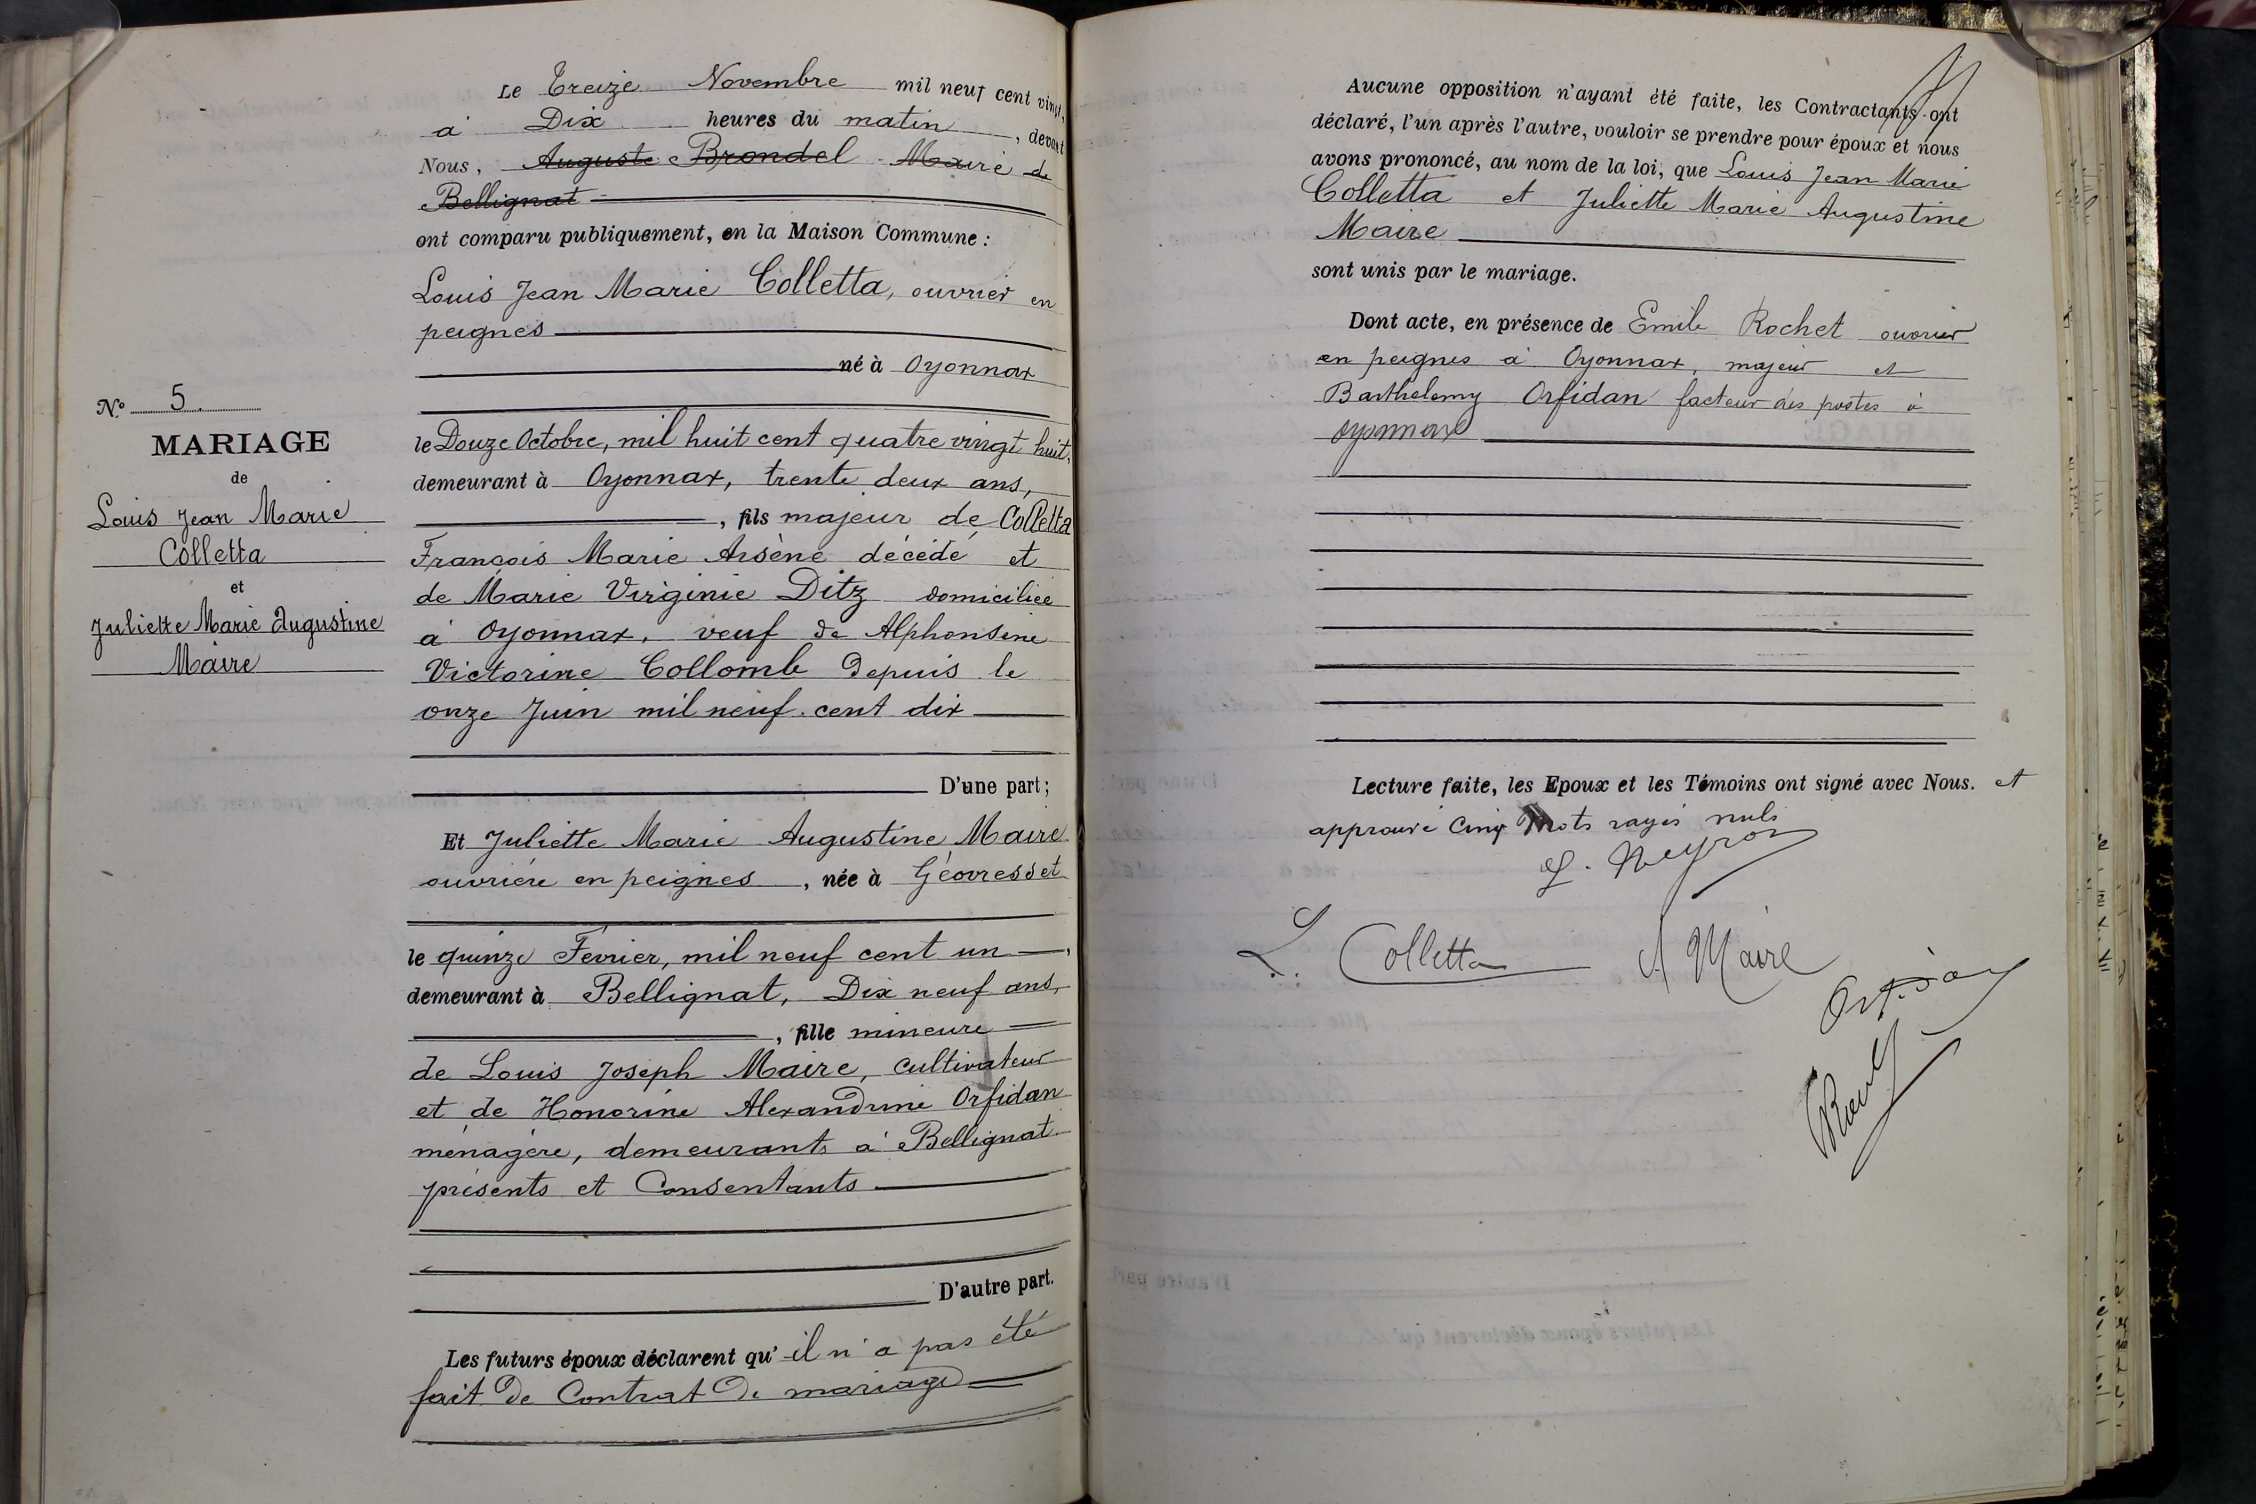 Le Treize Novembre mil neuf cent vingt,
à Dix heures du matin, devant
Nous, Auguste Brondel Maire de
Bellignat
ont comparu publiquement, en la Maison Commune :
Louis Jean Marie Colletta, ouvrier en
peignes
né à Oyonnax
le Douze Octobre, mil huit cent quatre vingt huit,
demeurant à Oyonnax, trente deux ans,
, fils majeur de Colletta
François Marie Arsène décédé et
de Marie Virginie Ditz domiciliée
à Oyonnax, veuf de Alphonsine
Victorine Collomb depuis le
onze Juin mil neuf cent dix
D'une part ;
Et Juliette Marie Augustine Maire
ouvrière en peignes, née à Géovresset
le quinze Février, mil neuf cent un,
demeurant à Bellignat, Dix neuf ans,
, fille mineure
de Louis Joseph Maire, cultivateur
et de Honorine Alexandrine Orfidan
ménagère, demeurants à Bellignat
présents et Consentants
D'autre part.
Les futurs époux déclarent qu'il n'a pas été
fait de Contrat de mariage
N° 5
MARIAGE
de
Louis Jean Marie
Colletta
et
Juliette Marie Augustine
Maire
Aucune opposition n'ayant été faite, les Contractants ont
déclaré, l'un après l'autre, vouloir se prendre pour époux et nous
avons prononcé, au nom de la loi, que Louis Jean Marie
Colletta et Juliette Marie Augustine
Maire
sont unis par le mariage.
Dont acte, en présence de Emile Rochet ouvrier
en peignes à Oyonnax, majeur et
Barthelemy Orfidan facteur des postes à
Oyonnax
Lecture faite, les Epoux et les Témoins ont signé avec Nous. et
approuvé cinq mots rayés nuls
L. Neyron
L. Colletta
Maire
Orfidan